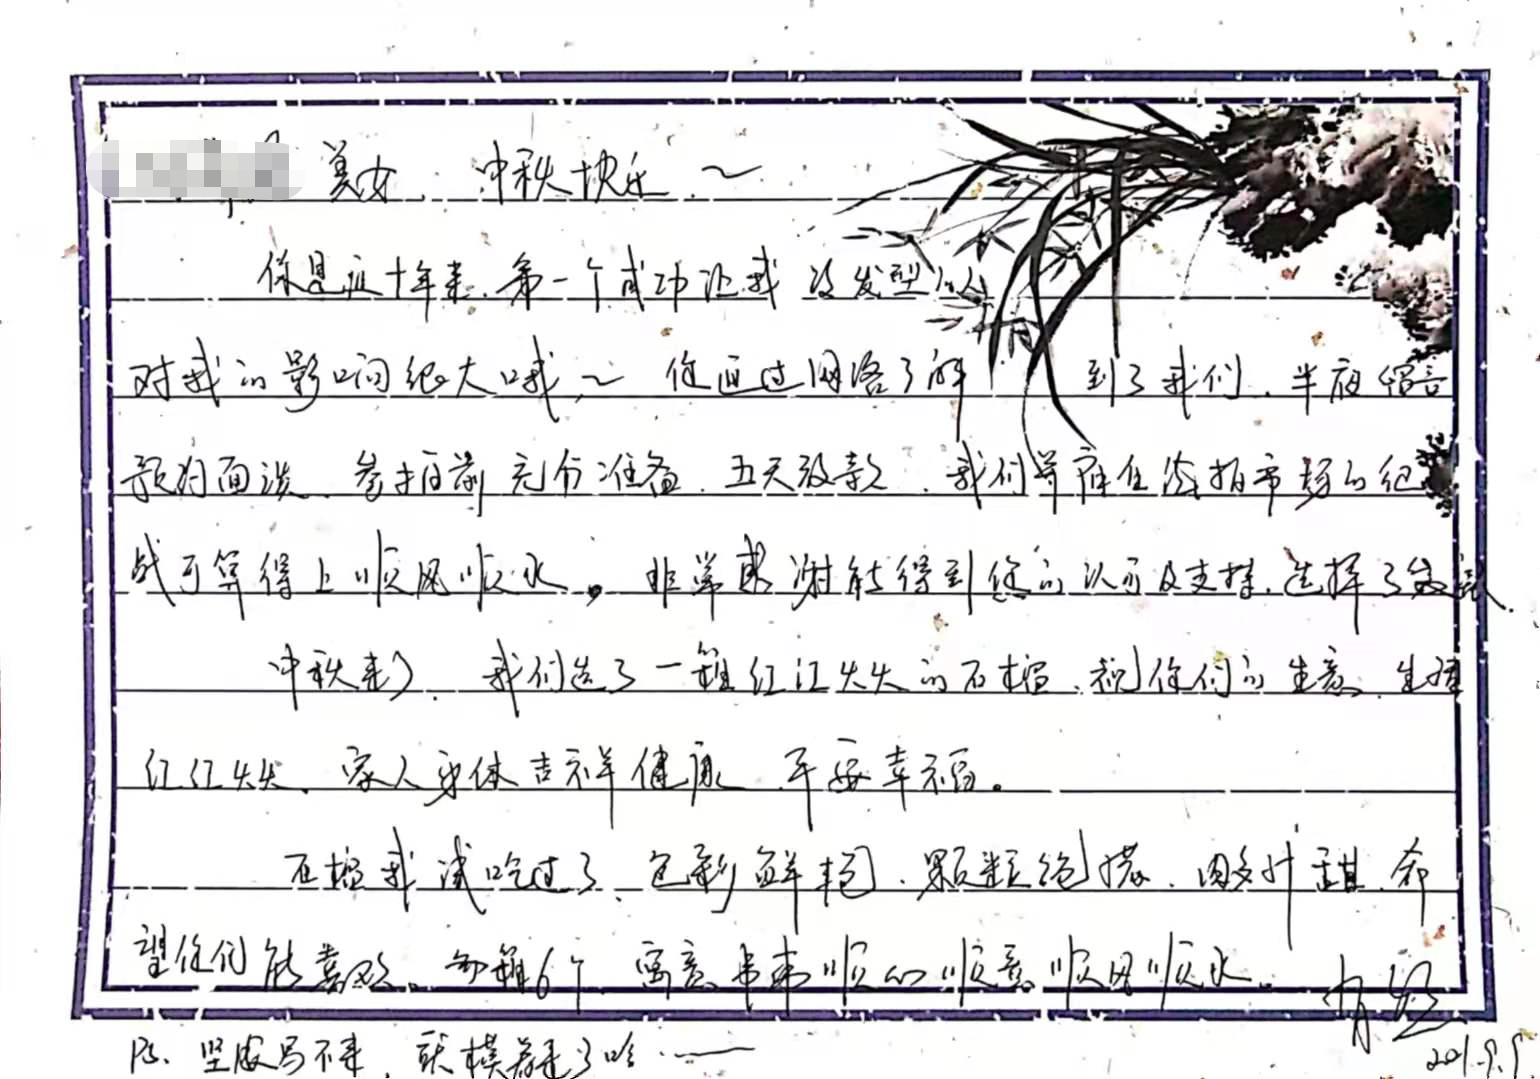 美女、中秋快乐~
你是近十年来、第一个成功让我没发型的人
对我的影响很大哦~ 您通过网络了解到了我们、半夜留言
预约面谈、参拍前充分准备、五天放款、我们并肩在法拍市场的征
战可算得上顺风顺水。非常感谢能得到您的认可及支持、选择了
中秋来了、我们选了一箱红红火火的石榴、祝您们的生意、生活
红红火火、家人身体吉祥健康、平安幸福。
石榴我试吃过了、色彩鲜艳、颗粒饱满、肉多汁甜、希
望您们能喜欢、每箱6个、寓意事事顺心顺意顺风顺水。
PS、坚尼马不来、就模着走了哈